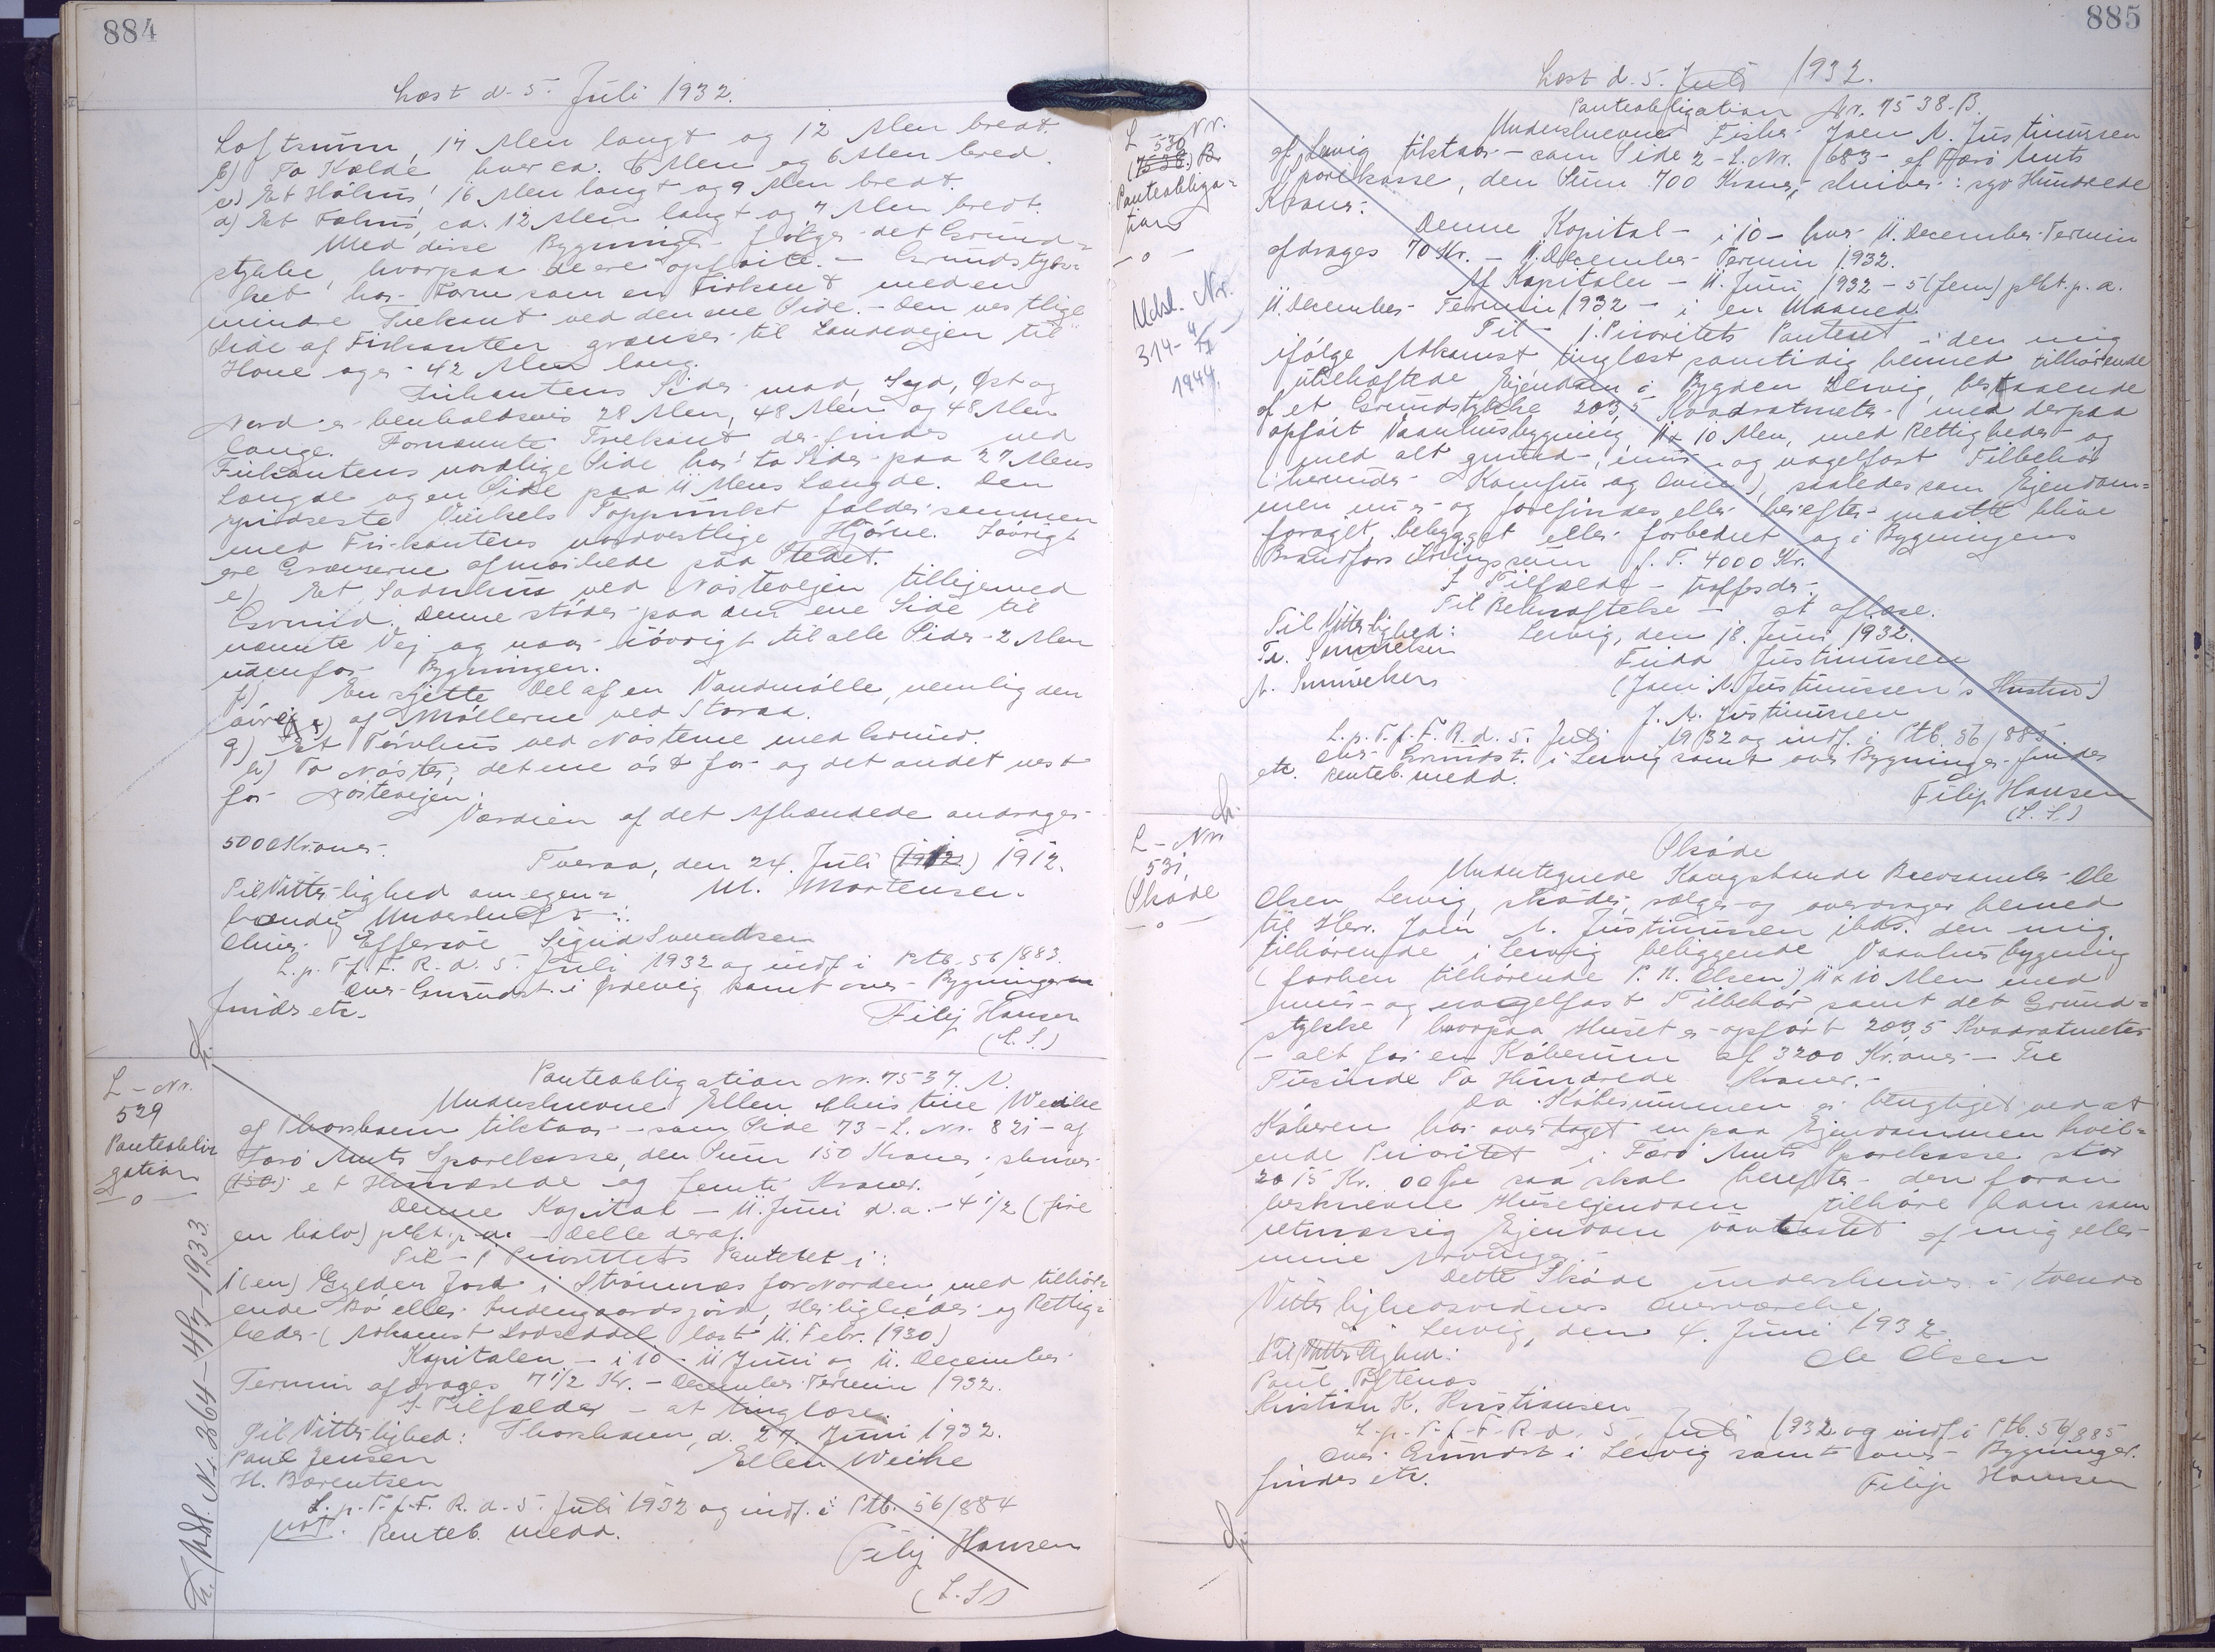 884
Læst d. 5. Juli 1932.
Loftsrum, 14 Alen langt og 12 Alen bredt.
b) To Kælde, hver ca. 6 Alen og 6 Alen bred.
c) Et Høhus, 16 Alen langt og 9 Alen bredt.
d) Et Fæhus, ca. 12 Alen langt og 7 Alen bredt.
Med disse Bygninger følger det Grund=
stykke, hvorpaa de ere opførte. - Grundstyk=
ket har Form som en Firkant med en
mindre Trekant ved den ene Side. - Den vestlige
Side af Firkanten grænser til Landevejen til
Hove og er 42 Alen lang.
Firkantens Sider mod Syd, Øst og
Nord er henholdsvis 28 Alen, 48 Alen og 48 Alen
lange. Fornævnte Trekant der findes ved
Firkantens nordlige Side har to Sider paa 27 Alens
Længde og en Side paa 11 Alens Længde. Den
spidseste Vinkels Toppunkt falder sammen
med Firkantens nordvestlige Hjørne. Iøvrigt
ere Grænserne afmærkede paa Stedet.
e) Et Saduhus ved Nøstevejen tilligemed
Grund. Denne støder paa den ene Side til
nævnte Vej og naar iøvrigt til alle Sider 2 Alen
udenfor Bygningen.
f) En sjette Del af en Vandmølle, nemlig den
øvre af Møllerne ved Storaa.
g) Et Tørvhus ved Nøsterne med Grund.
h) To Nøster, det ene øst for og det andet vest
for Nøstevejen.
Værdien af det Afhændede andrager
5000 Kroner.
Tveraa, den 24. Juli (1912.) 1912.
Til Vitterlighed om egen= M. Mortensen.
hændig Underskrift:
Oliver Effersøe Sigrid Svendsen
L. p. T. f. F. R. d. 5. Juli 1932 og indf. i Ptb. 56/883.
Over Grundst. i Ørdevig samt over Bygningerne
findes etc.
Filip Hansen
(L. S.)
L-Nr.
529
Panteobli
gation
-o-
Panteobligation Nr. 7537. A.
Underskrevne Ellen Christine Weihe
af Thorshavn tilstaar - som Side 73 - L. Nr. 821 - af
Færø Amts Sparekasse, den Sum 150 Kroner, skriver
(150) et Hundrede og femti Kroner.
Denne Kapital - 11. Juni d.a. - 4 1/2 (fire
en halv) pCt. p.a. - Delle deraf.
Til - 1 Prioritets Panteret i:
1 (en) Gylden Jord i Strømnæs for Norden, med tilhør=
ende Bø eller Indengaardsjord, Herligheder og Rettig=
heder (Adkomst Lodseddel læst 11. Febr. 1930)
Kapitalen - i 10 - 11 Juni og 11. December
Termin afdrages 7 1/2 Kr. - December Termin 1932.
I Tilfælde - at tinglæse.
Til Vitterlighed: Thorshavn, d. 27 Juni 1932.
Paul Jensen Ellen Weihe
H. Bærentsen
L. p. T. f. F. R. d. 5. Juli 1932 og indf. i Ptb. 56/884
Renteb. medd.
Filip Hansen
(L. S.)
Udsl. Nr. 364 - 4/7 - 1933
885
Læst d. 5. Juli 1932.
L-Nr.
530
(7538.) B.
Panteobliga=
tion
-o-
Udsl. Nr.
314-
1944.
Panteobligation Nr. 7538. B.
Underskrevne Fisker Joen A. Justinussen
af Lervig tilstaar - som Side 2 - L. Nr. 683 - af Færø Amts
Sparekasse, den Sum 700 Kroner, skriver: syv Hundrede
Kroner.
Denne Kapital - i 10 - hver 11. December Termin
afdrages 70 Kr. - 11. December Termin 1932.
Af Kapitalen - 11. Juni 1932 - 5 (fem) pCt. p. a.
11. December Termin 1932 - i en Maaned.
Til - 1. Prioritets Panteret i den mig
ifølge Adkomst tinglæst samtidig hermed tilhørende
ubehæftede Ejendom i Bygden Lervig, bestaaende
af et Grundstykke 203,5 Kvadratmeter med derpaa
opført Vaanhusbygning, 11 x 10 Alen, med Rettigheder og
med alt grund-, mur- og nagelfast Tilbehør
(herunder Komfur og Ovne), saaledes som Ejendom=
men nu er og forefindes eller herefter maatte blive
forøget, bebygget eller forbedret og i Bygningens
Brandforsikringssum f. T. 4000 Kr.
I Tilfælde - træffes der.
Til Bekræftelse - at aflæse.
Til Vitterlighed: Lervig, den 18. Juni 1932.
Frida Justinussen
(Joen A. Justinussen's Hustru)
J. A. Justinussen
L. p. T. f. F. R. d. 5. Juli 1932 og indf. i Ptb. 56/885.
Over Grundst. i Lervig samt over Bygninger findes
etc. Renteb. medd.
Filip Hansen
(L. S.)
L-Nr.
531,
Skøde
-o-
Skøde
Undertegnede Kongsbonde Brevsamler Ole
Olsen, Lervig, skøder, sælger og overdrager hermed
til Herr. Joen A. Justinussen ibds. den mig
tilhørende i Lervig beliggende Vaanhusbygning
(forhen tilhørende P. H. Olsen) 11 x 10 Alen med
mur- og nagelfast Tilbehør samt det Grund=
stykke hvorpaa Huset er opført 203,5 Kvadratmeter
- alt for en Købesum af 3200 Kroner - Tre
Tusinde To Hundrede Kroner. -
Da Købesummen er berigtiget ved at
Køberen har overtaget en paa Ejendommen hvil=
ende Prioritet i Færø Amts Sparekasse stor
2015 Kr. saa skal herefter den foran
beskrevne Husejendom tilhøre ham som
retmæssig Ejendom uantastet af mig eller
mine Arvinger. -
Dette Skøde underskrives i tvende
Vitterlighedsvidners Overværelse.
Lervig, den 4. Juni 1932.
Til Vitterlighed: Ole Olsen
Poul Toftenæs
Kristian K. Kristiansen
L. p. T. f. F. R. d. 5. Juli 1932 og indf. i Ptb. 56/885
Over Grundst i Lervig samt over Bygninger.
findes etc.
Filip Hansen